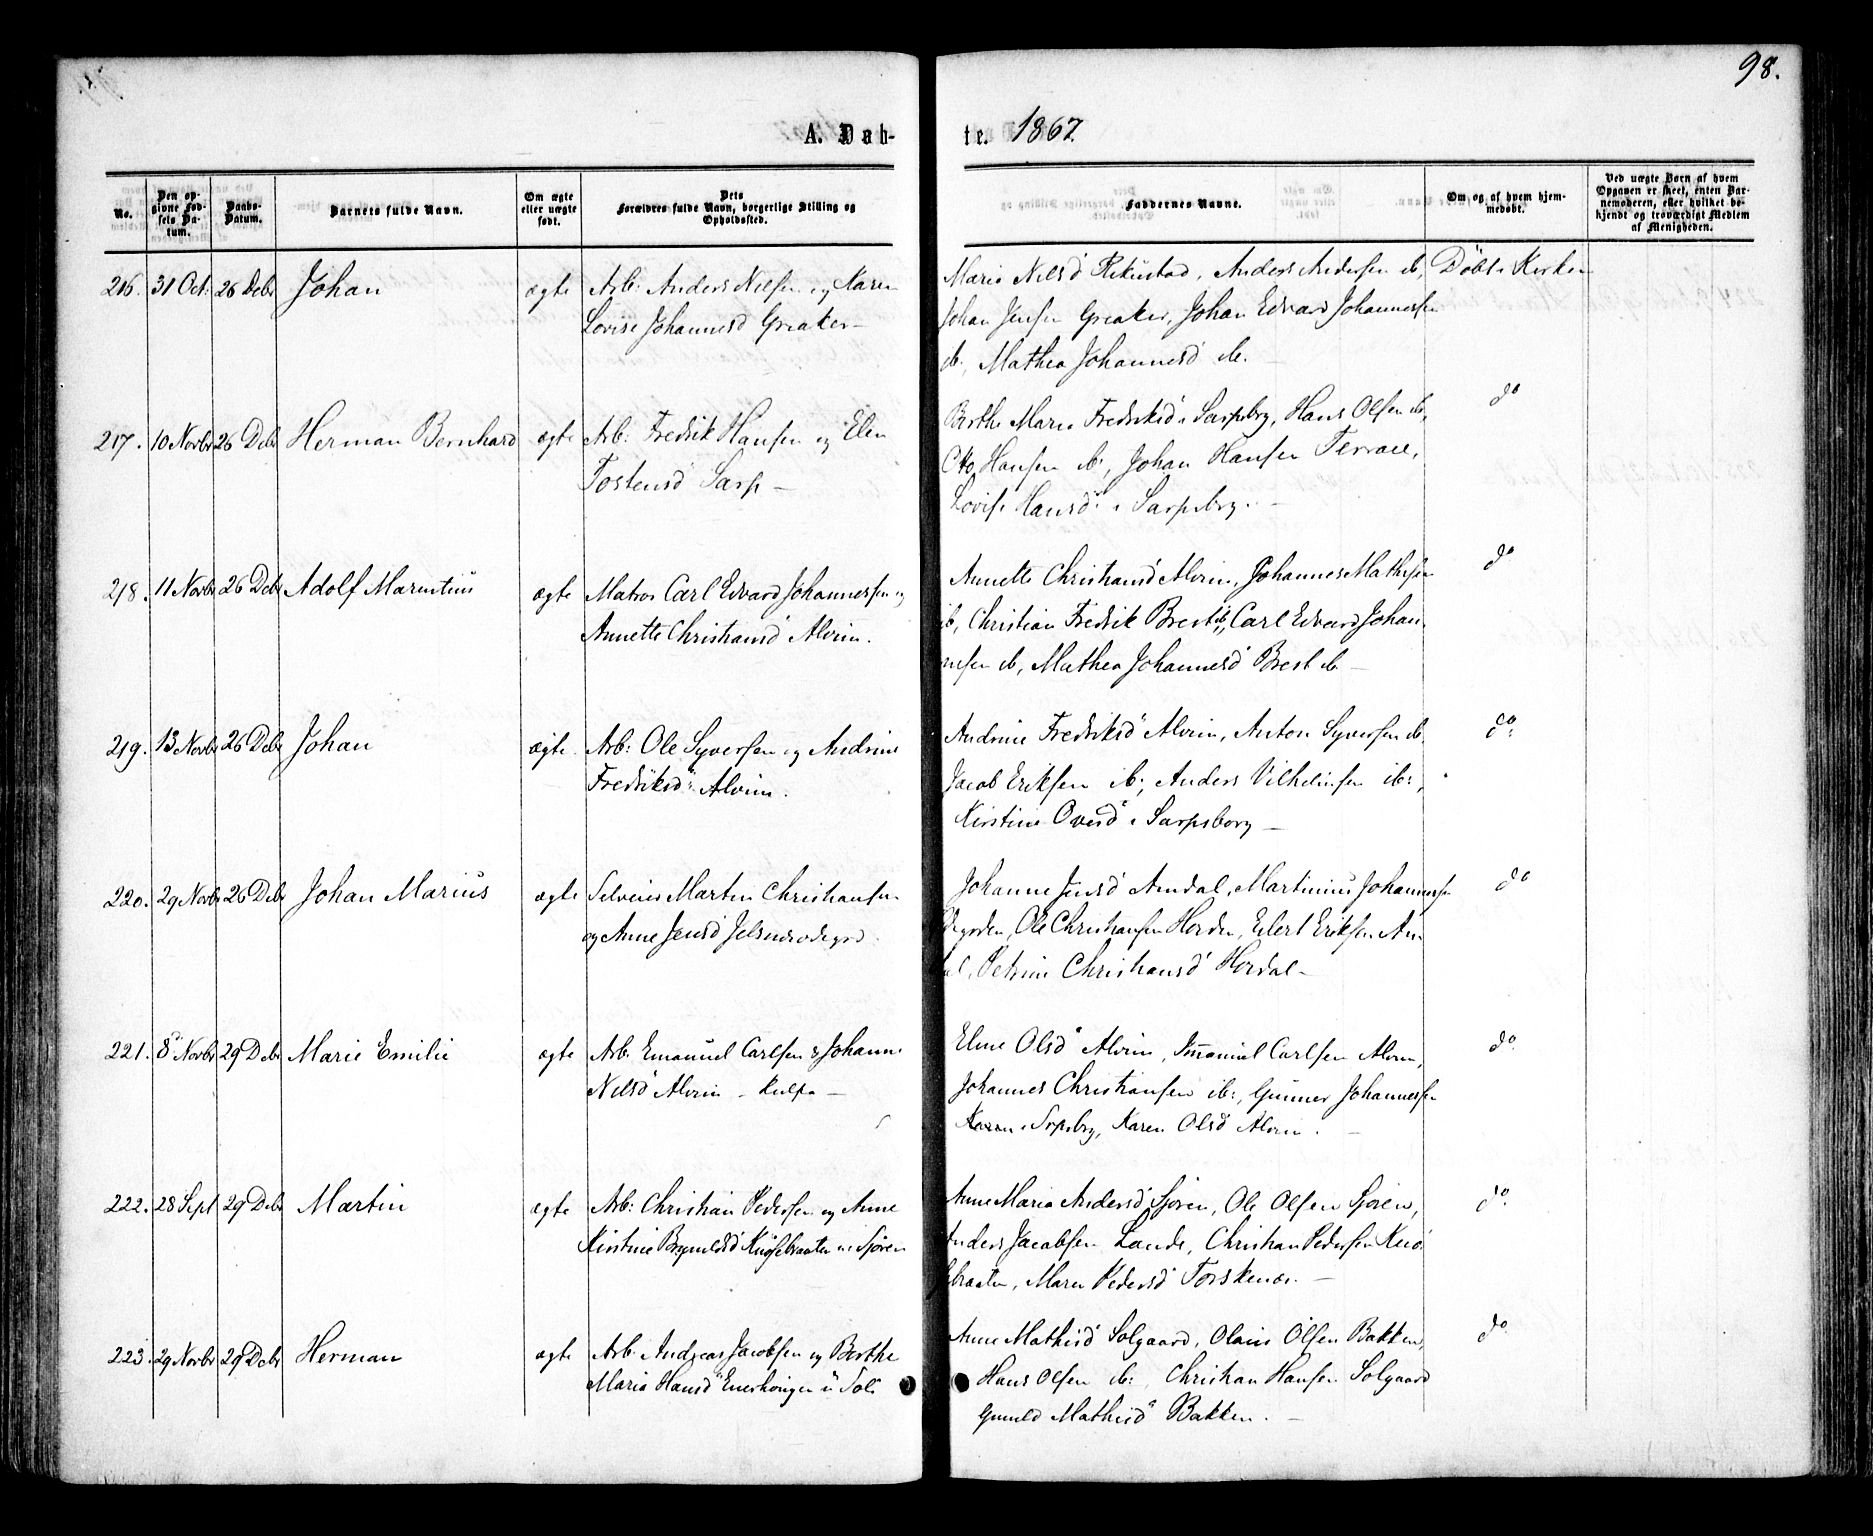 98.
A. Døb-
te. 1867
No.
Den op-
givne Fød-
sels Da-
tum.
Daabs-
Datum.
Barnets fulde Navn.
Om ægte
eller uægte
født.
Dets
Forældres fulde Navn, borgerlige Stilling og
Opholdssted.
Faddernes Navne.
Om og af hvem hjem-
medøbt.
Ved uægte Børn af hvem
Opgaven er skeet, enten Bar-
nemoderen, eller hvilket be-
kjendt og troværdigt Medlem
af Menigheden.
216. 31 Oct: 26 Debr Johan ægte Arb: Anders Nilsen og Karen
Lovise Johannesd Greaker-
Maria Nilsd Anders Andersen ib, Døbt i Kirken
Johan Jensen Greaker, Johan Edvard Johannessen
ib, Mathea Johannesd ib. -
217. 10 Novbr 26 Debr Herman Bernhard ægte Arb: Fredrik Hansen og Elen
Tostensd Sarp -
Berthe Maria Fredriksd i Sarpsbrg, Hans Olsen ib, do
Otto Hansen ib, Johan Hansen Terrace,
Lovise Hansd i Sarpsbrg. -
218. 11 Novbr 26 Debr Adolf Marentius ægte Matros Carl Edvard Johannessen og
Annette Christiansd Alvim.
Annette Christiansd Alvim, Johannes Mathisen do
ib, Christian Fredrik Brest ib, Carl Edvard Johan-
nesen ib, Mathea Johannesd Brest ib -
219. 13 Novbr 26 Debr Johan ægte Arb: Ole Syversen og Andrine
Fredriksd Alvim.
Andrine Fredriksd Alvim, Anton Syversen ib. do:
Jacob Eriksen ib, Anders Vilhelmsen ib:,
Kirstine Ovesd i Sarpsborg -
220. 29 Novbr 26 Debr Johan Marius ægte Selveier Marten Christiansen
og Anne Jensd
Johanne Jensd Arndal, Martinius Johannessen do
Ole Christiansen Eilert Eriksen
Petrine Christiansd Hordal -
221. 8 Novbr 29 Debr Marie Emilie ægte Arb. Emanuel Carlsen & Johanne
Nilsd Alvim - Kulpa -
Eline Olsd Alvim, Emanuel Carlsen Alvim, do
Johannes Christiansen ib:, Gunner Johannessen
i Srpsbrg, Karen Olsd Alvim. -
222. 28 Sept 29 Debr Martin ægte Arb: Christian Pedersen og Anne
Kirstine Sjøren
Anne Maria Andersd Sjøren, Ole Olsen Sjøren, do.
Anders Jacobsen Lande, Christian Pedersen
Maren Pedersd Torskenæs. -
223. 29 Novbr 29 Debr Herman ægte Arb. Andreas Jacobsen og Berthe
Maria Hansd
Anne Mathisd Solgaard, Olaus Olsen Bakken, do
Hans Olsen ib:, Christian Hansen Solgaard
Gunild Mathisd Bakken. -